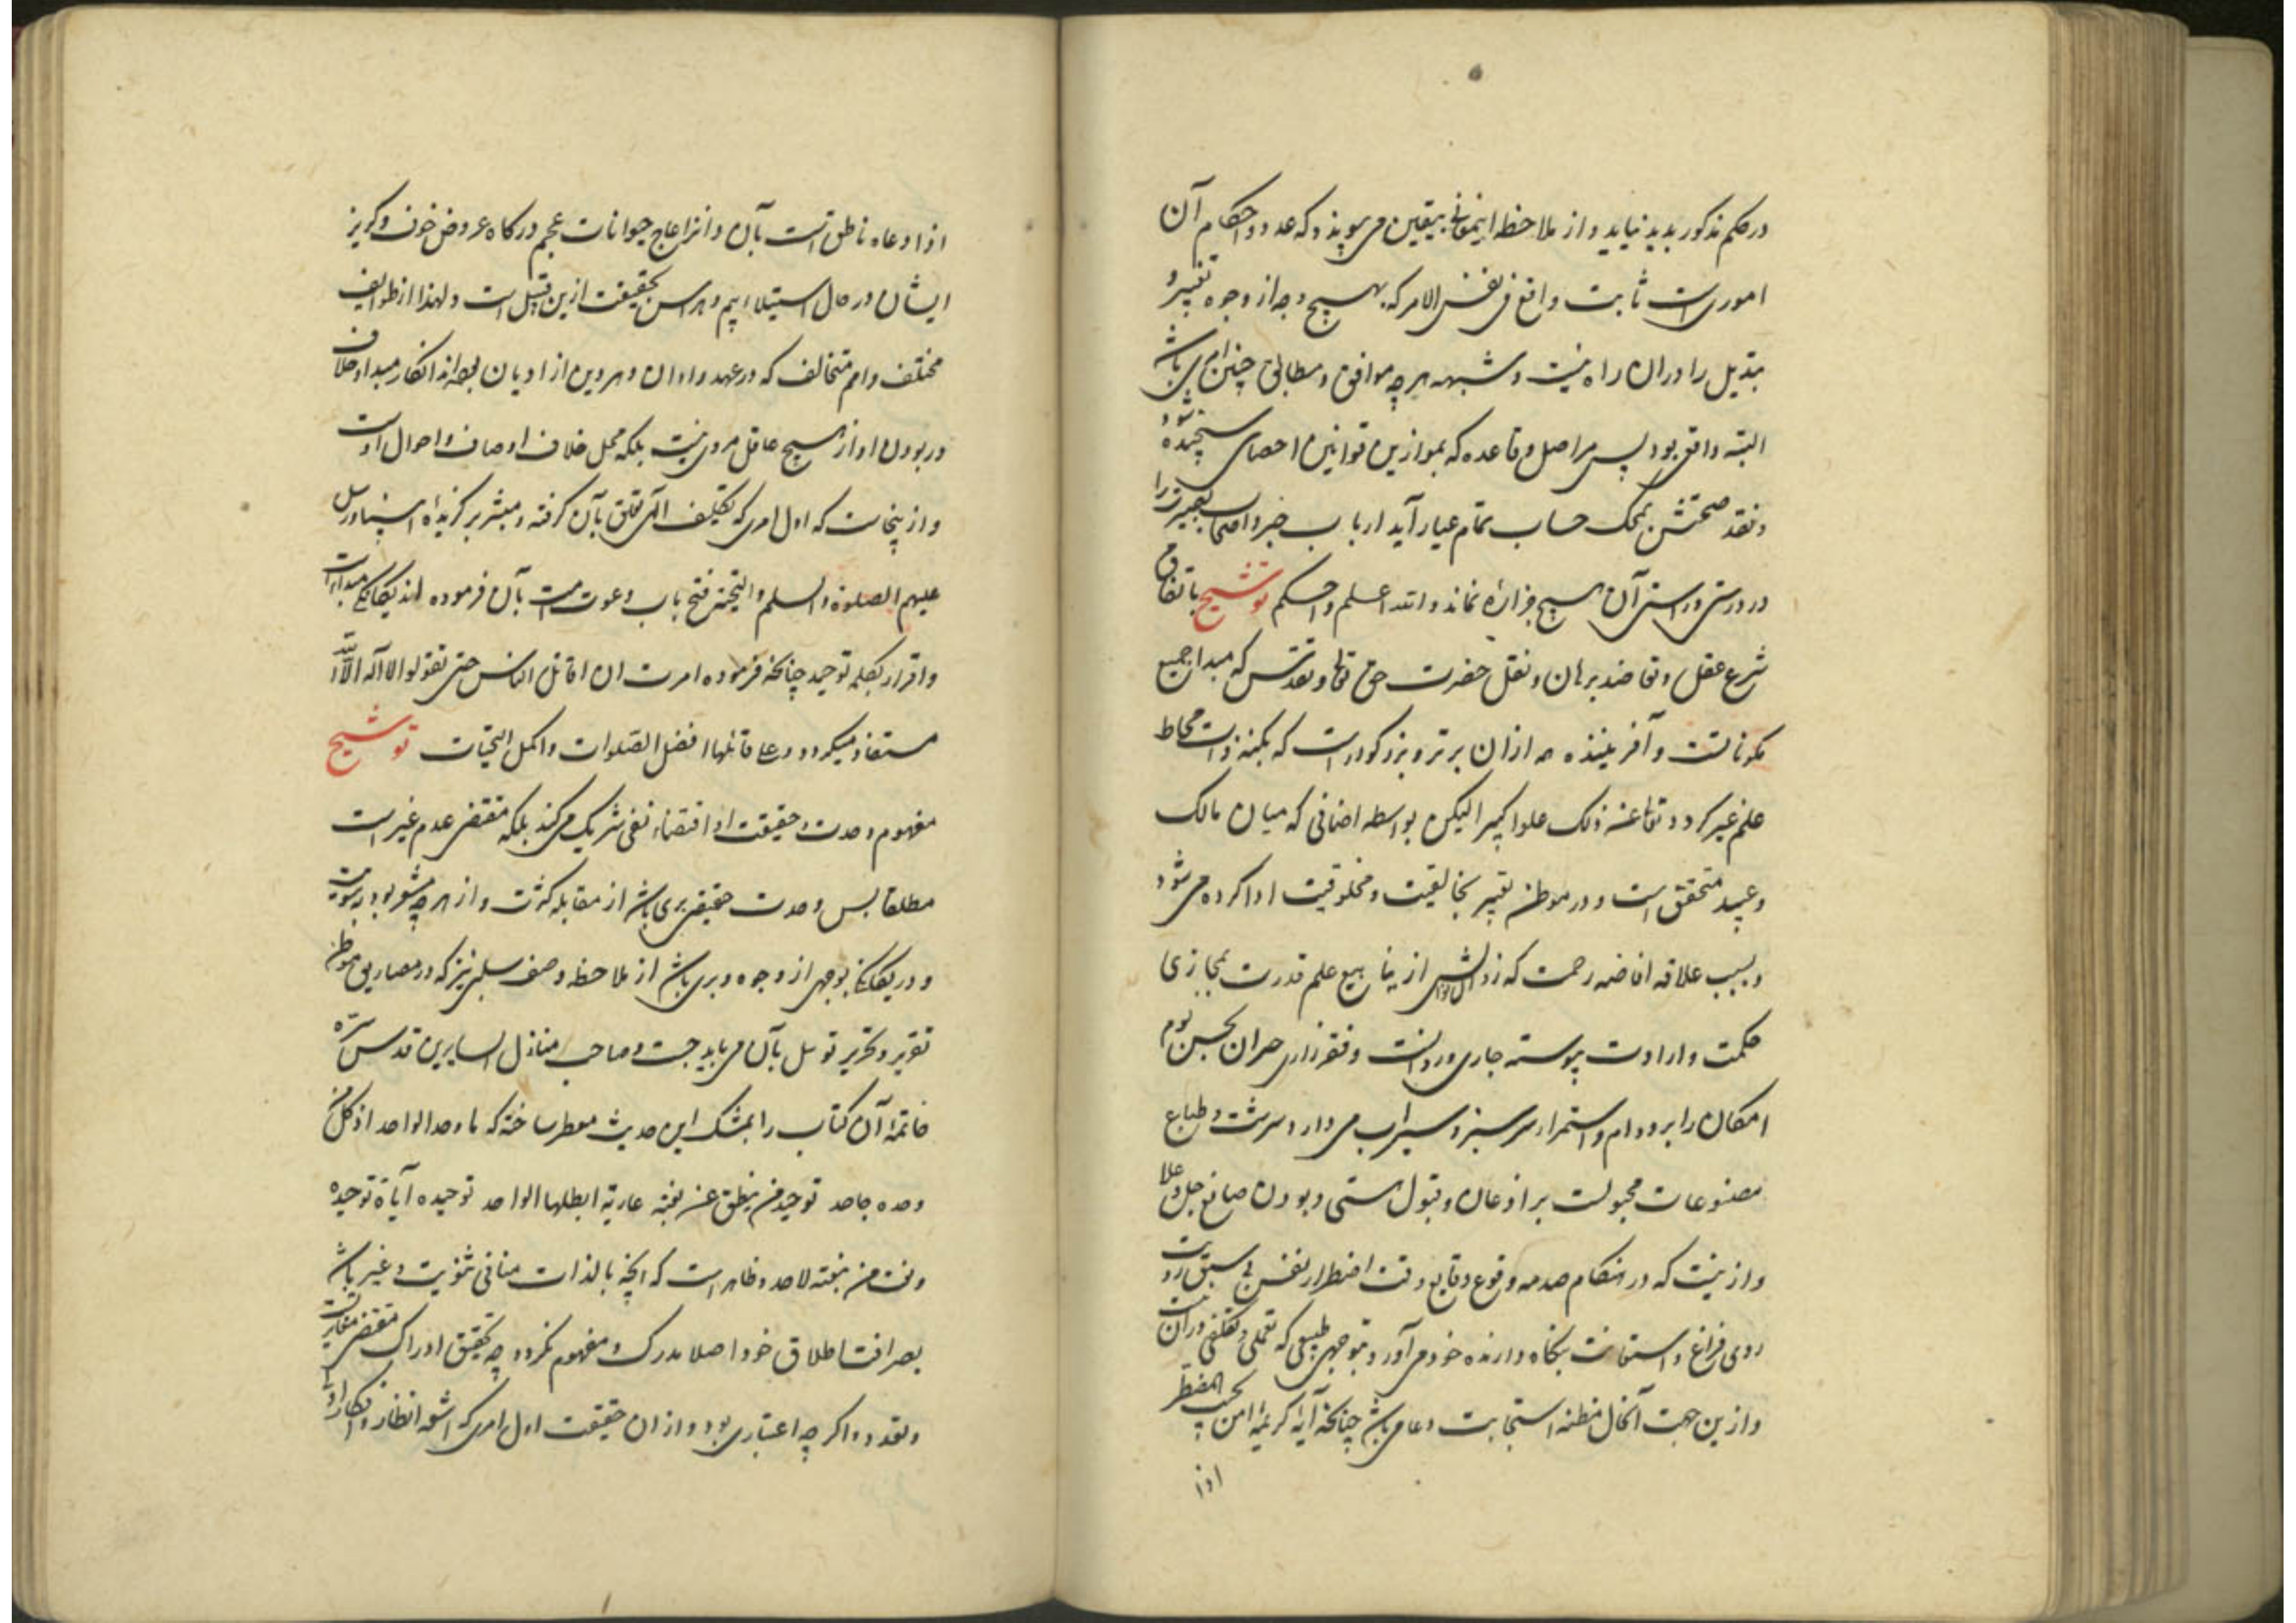 در حکم مذکور پدید نیاید و از ملاحظه اینمعانی بیقین می پیوندد که عدد و احکام آن
اموریست ثابت واقع فی نفس الامر که بهیچ وجه از وجوه تغییر و
تبدیل را دران راه نیست و شبهه هرچه موافق و مطابق چنین امری باشد
البته واقع بود پس هر اصل و قاعده که بموازین قوانین احصای سنجیده شود و
و نقد صحتش بمحک حساب تمام عیار آید ارباب خبر و اصحاب تعبیر را
در درستی و راستی آن هیچ نماند والله اعلم و احکم توشیح باتفاق
شرع عقل و تعاضد برهان و نقل حضرت حق تعالی و تقدس که مبدا جمیع
مکوناتست و آفریننده همه ازان برتر و بزرگوارترست که بکنه ذات محاط
علم غیر گردد تعالی عن ذلک علوا کبیرا لیکن بواسطه اضافی که میان مالک
و عبید متحقق است و در موطن تعبیر بخالقیت و مخلوقیت ادا کرده می شود
و بسبب علاقه افاضه رحمت که از ینابیع علم قدرت بمجاری
حکمت و ارادت پیوسته جاری و روانست و
امکان را برو دوام و استمرار سرسبز و سیراب می دارد سرشت و طباع
مصنوعات مجبولست بر اذعان و قبول هستی و بودن صانع جل و علا
و ازینست که در هنگام صدمه وقوع وقایع وقت اضطرار نفس بی سبق رویت
روی فراغ و استعانت بنگاه دارنده خود می آورد و توجهی طبیعی که تعملی و تکلفی دران نیست
و ازین جهت آنحال مظنه استجابت دعا می باشد چنانکه آیه کریمه امن یجیب المضطر
اذا
اذا دعاه ناطق است بآن و انزعاج حیوانات عجم در گاه عروض خوف و گریز
ایشان در حال استیلاء بیم و هراس بحقیقت ازین قبیل است و لهذا از طوایف
مختلف و امم متخالف که در عهد و اوان و هر دین از ادیان بوده اند انکار مبدا و خلاف
در بودن او از هیچ عاقل مروی نیست بلکه محل خلاف اوصاف و احوال اوست
و ازینجاست که اول امری که تکلیف الهی تعلق بآن گرفته و مبشر برگزیده انبیا و رسل
علیهم الصلوة والسلم و التحیة فتح باب دعوت امت بآن فرموده اند یگانگی مبداست
و اقرار بکلمه توحید چنانکه فرموده امرت ان اقاتل الناس حتی تقولوا لا اله الا الله
مستفاد میگردد و علی قائلها افضل الصلوات و اکمل التحیات توشیح
مفهوم وحدت و حقیقت او اقتضاء نفی شریک می کند بلکه مقتضی عدم غیر است
مطلقا پس وحدت حقیقی بری باشد از مقابله کثرت و از هرچه مشعر بود
و در یگانگی بوجهی از وجوه و بری باشد از ملاحظه وصف سلبی نیز که در موطن
تقریر و تحریر توسل بآن می باید جست و صاحب منازل السایرین قدس سره
خاتمه آن کتاب را بمشک این حدیث معطر ساخته که ما وحد الواحد اذ کل من
وحده جاحد توحید من ینطق عن نعته عاریة ابطلها الواحد توحیده ایاه توحیده
و نعت من ینعته لاحد و ظاهر است که آنچه بالذات منافی ثنویت و غیر باشد
بصرافت اطلاق خود اصلا مدرک و مفهوم نگردد چه تحقق ادراک مقتضی مغایرت
و تعدد و اگرچه اعتباری بود و ازان حقیقت اول امری که اشعه انظار و افکار